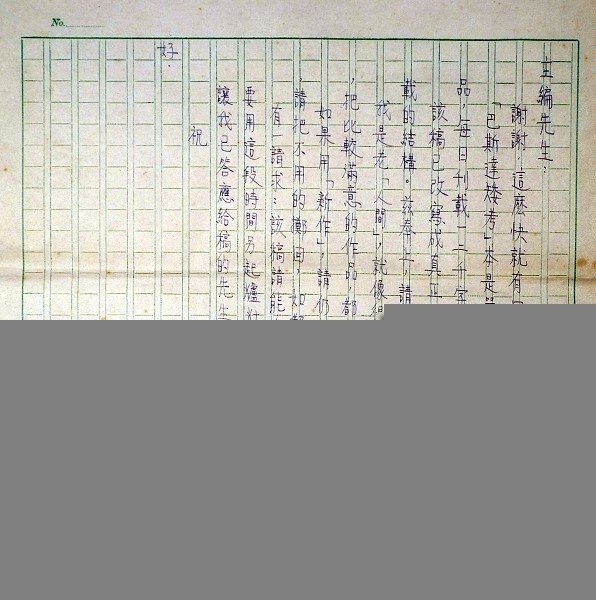 No.
主編先生：
謝謝，這麼快就有
「巴斯達矮考」本是
品，每日刊載一二千字
該稿已改寫成真正
載的結構。茲奉上，請
我是老「人間」，就像
，把比較滿意的作品，都
如果用「新作」，請仍
，請把不用的擲回，如
有一請求：該稿請能
要用這段時間另起爐灶
讓我已答應給稿的先生
祝
好．